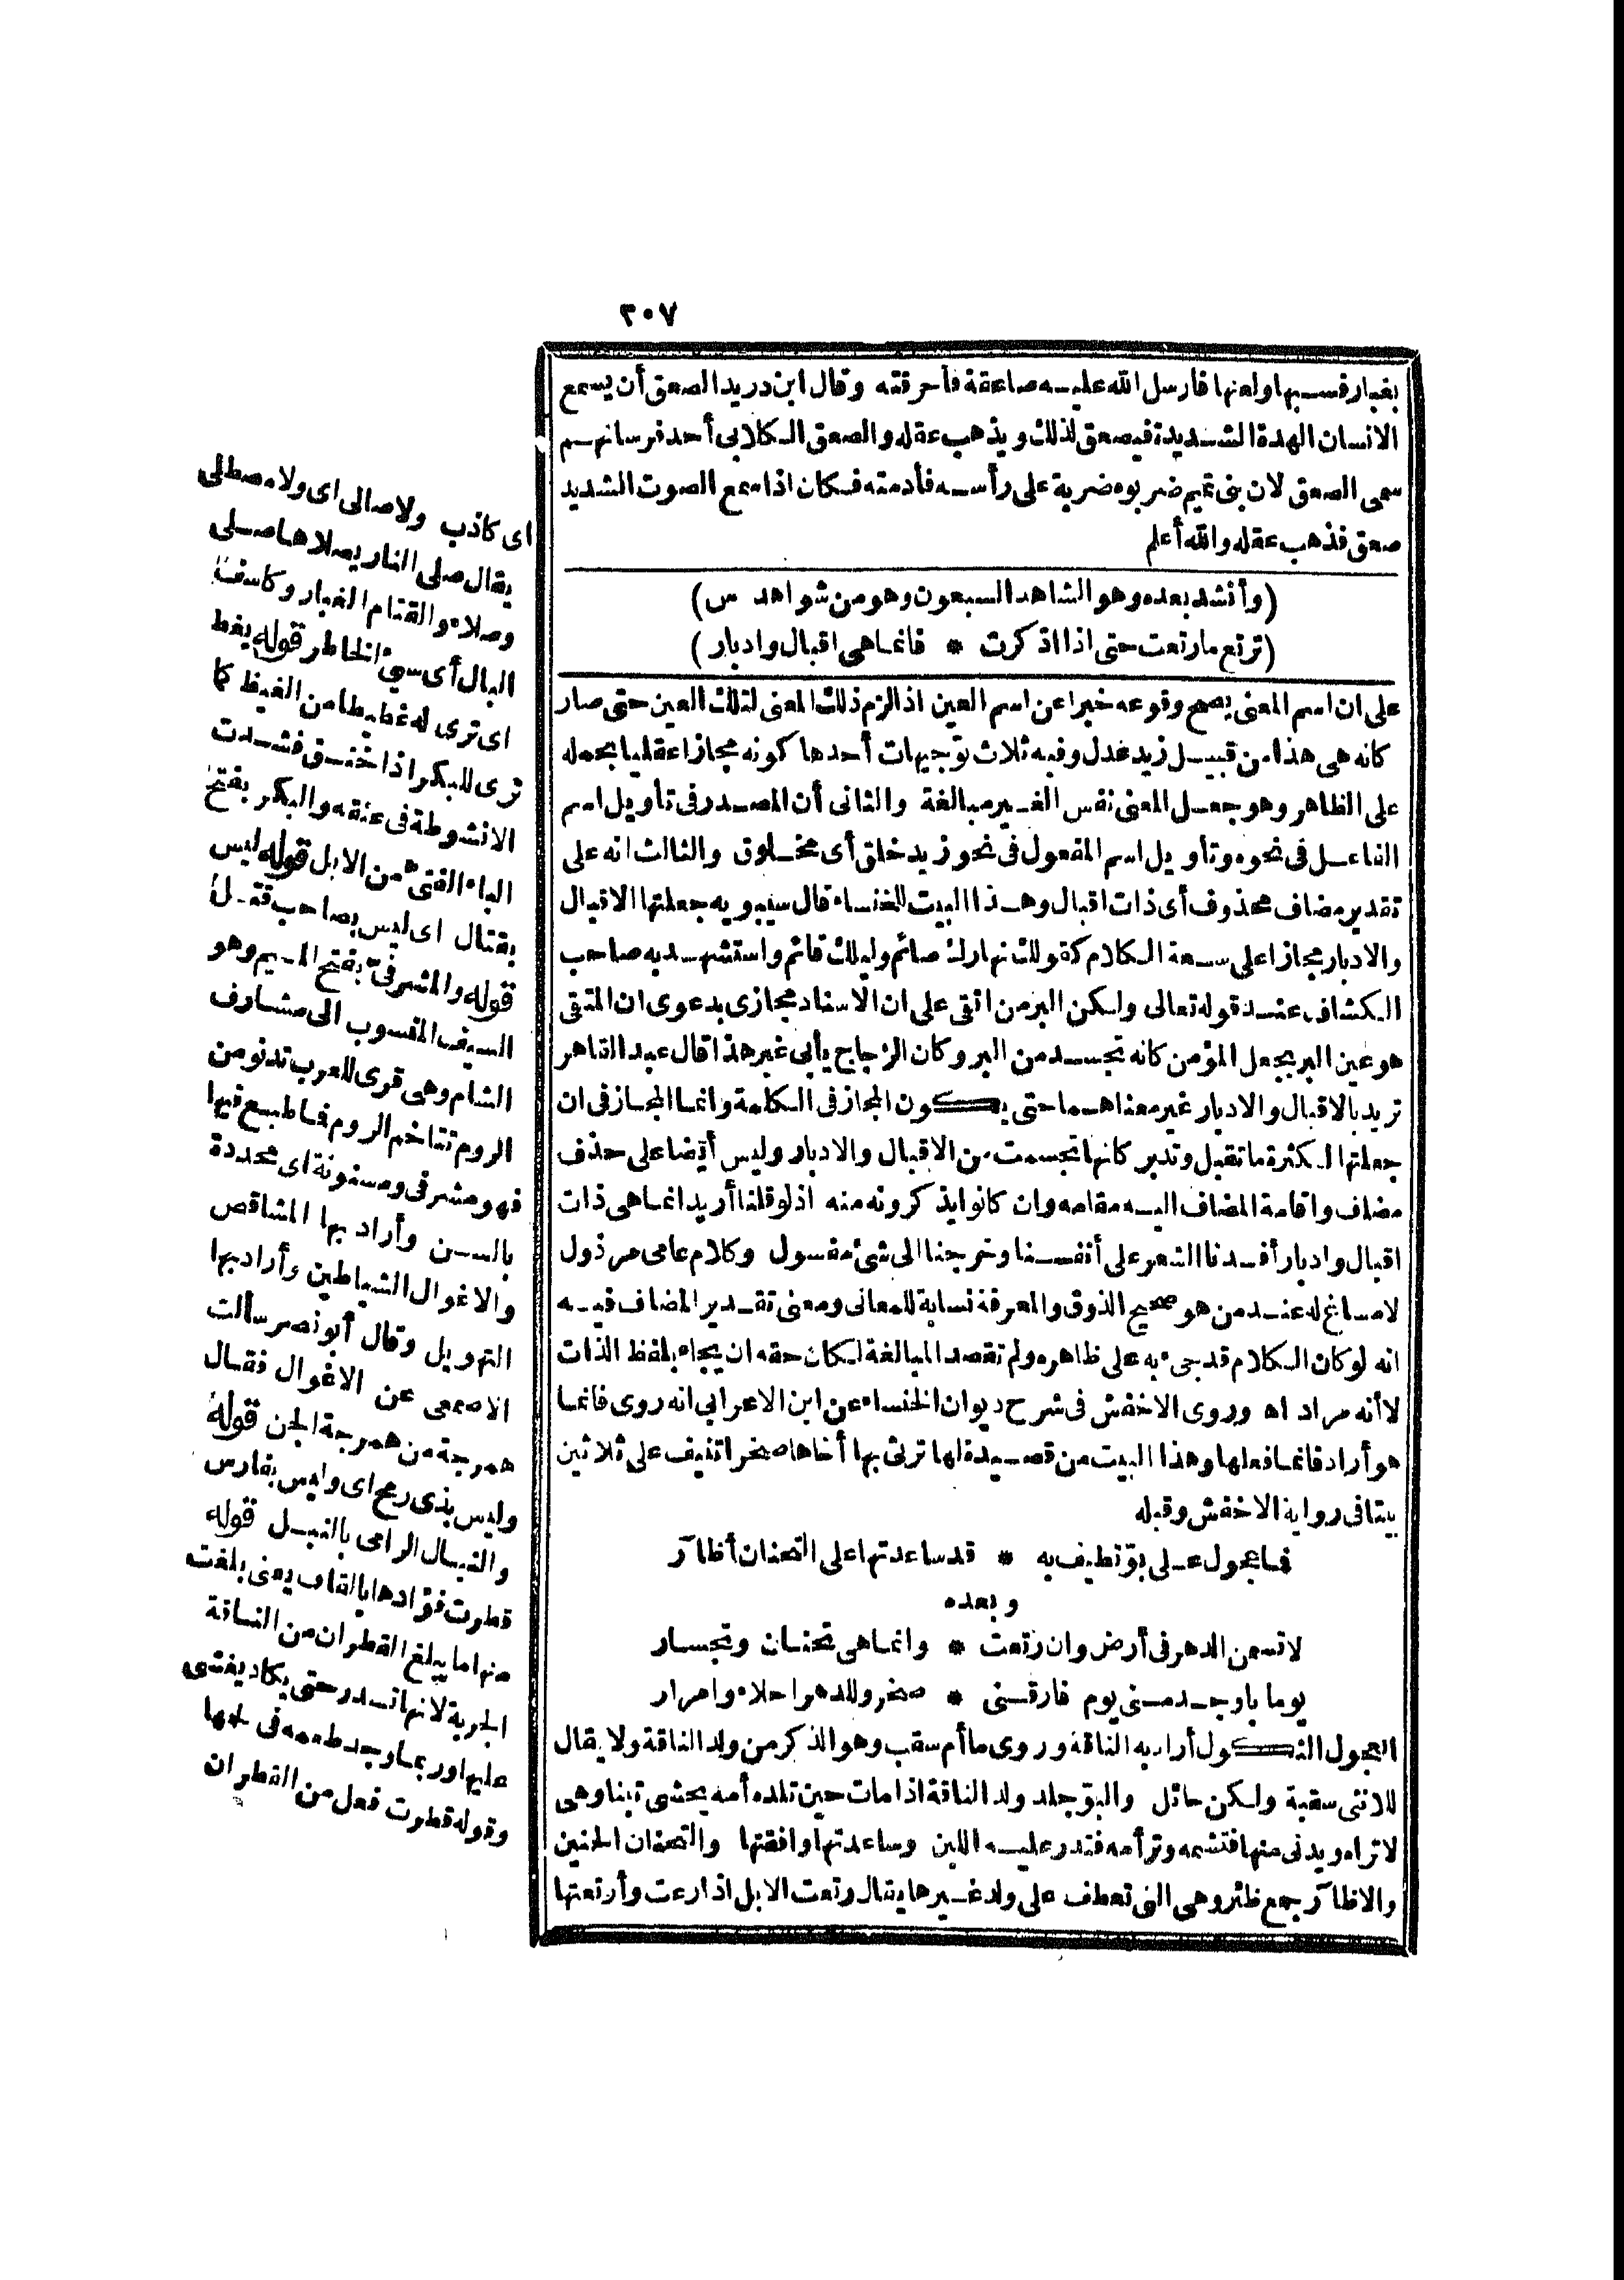 ٢٠٧
بغبار فسبها ولعنها فارسل الله عليه صاعقة فأحرقته وقال ابن دريد الصعق أن يسمع
الانسان الهدة الشديدة فيصعق لذلك ويذهب عقله والصعق الكلابى أحد فرسانهم
سمى الصعق لان بنى تميم ضربوه ضربة على رأسه فأدمته فكان اذا سمع الصوت الشديد
صعق فذهب عقله والله أعلم
(وأنشد بعده وهو الشاهد السبعون وهو من شواهد س)
(ترتع ما رتعت حتى اذا اذكرت * فانما هى اقبال وادبار)
على ان اسم المعنى يصح وقوعه خبرا عن اسم العين اذا لزم ذلك المعنى لتلك العين حتى صار
كانه هى هذا من قبيل زيد عدل وفيه ثلاث توجيهات أحدها كونه مجازا عقليا بحمله
على الظاهر وهو جعل المعنى نفس الغير مبالغة والثانى أن المصدر فى تأويل اسم
الفاعل فى نحوه وتأويل اسم المفعول فى نحو زيد خلق أى مخلوق والثالث انه على
تقدير مضاف محذوف أى ذات اقبال وهذا البيت للخنساء قال سيبويه جعلتها الاقبال
والادبار مجازا على سعة الكلام كقولك نهارك صائم وليلك قائم واستشهد به صاحب
الكشاف عند قوله تعالى ولكن البر من اتقى على ان الاسناد مجازى بدعوى ان المتقى
هو عين البر بجعل المؤمن كانه تجسد من البر وكان الزجاج يأبى غير هذا قال عبد القاهر لم
ترد بالاقبال والادبار غير معناهما حتى يكون المجاز فى الكلمة وانما المجاز فى ان
جعلتها لكثرة ما تقبل وتدبر كانها تجسمت من الاقبال والادبار وليس أيضا على حذف
مضاف واقامة المضاف اليه مقامه وان كانوا يذكرونه منه اذ لو قلنا أريد انما هى ذات
اقبال وادبار أفسدنا الشعر على أنفسنا وخرجنا الى شئ مغسول وكلام عامى مرذول
لا مساغ له عند من هو صحيح الذوق والمعرفة نسابة للمعانى ومعنى تقدير المضاف فيه
انه لو كان الكلام قد جىء به على ظاهره ولم تقصد المبالغة لكان حقه ان يجاء بلفظ الذات
لا أنه مراد اه وروى الاخفش فى شرح ديوان الخنساء عن ابن الاعرابى انه روى فانما
هو أراد فانما فعلها وهذا البيت من قصيدة لها ترثى بها أخاها صخرا تنيف على ثلاثين
بيتا فى رواية الاخفش وقبله
فما عجول على بوّ تطيف به * قد ساعدتها على التحنان أظآر
وبعده
لا تسمن الدهر فى أرض وان رتعت * وانما هى تحنان وتجسار
يوما باوجد منى يوم فارقنى * صخر وللدهر احلاء وامرار
العجول الثكول أراد به الناقة وروى ما أم سقب وهو الذكر من ولد الناقة ولا يقال
للانثى سقبة ولكن حائل والبوّ جلد ولد الناقة اذا مات حين تلده أمه يحشى تبنا وهى
لا تراه ويدنى منها فتشمه وترأمه فتدر عليه اللبن وساعدتها وافقتها والتحنان الحنين
والاظآر جمع ظئر وهى التى تعطف على ولد غيرها يقال رتعت الابل اذا رعت وأرتعتها
اى كاذب ولا صالى اى ولا مصطلى
يقال صلى النار يصلاها صلى
وصلاء والقتام الغبار وكاسف
البال أى سيئ الخاطر قوله يغط
اى ترى له غطيطا من الغيظ كما
ترى للبكر اذا خنق فشدت
الانشوطة فى عنقه والبكر بفتح
الباء الفتىّ من الابل قوله ليس
بقتال اى ليس بصاحب قتل
قوله والمشرفىّ بفتح الميم وهو
السيف المنسوب الى مشارف
الشام وهى قرى للعرب تدنو من
الروم تتاخم الروم فما طبع فيها
فهو مشرفى ومسنونة اى محددة
بالسن وأراد بها المشاقص
والاغوال الشياطين وأراد بها
التهويل وقال أبو نصر سألت
الاصمعى عن الاغوال فقال
همرجة من همرجة الجن قوله
وليس بذى رمح اى وليس بفارس
والنبال الرامى بالنبل قوله
قطرت فؤادها بالقاف يعنى بلغت
منها ما يبلغ القطران من الناقة
الجربة لانها تسدر حتى يكاد يغشى
عليها وربما وجد طعمه فى لحمها
وقوله قطرت فعل من القطران